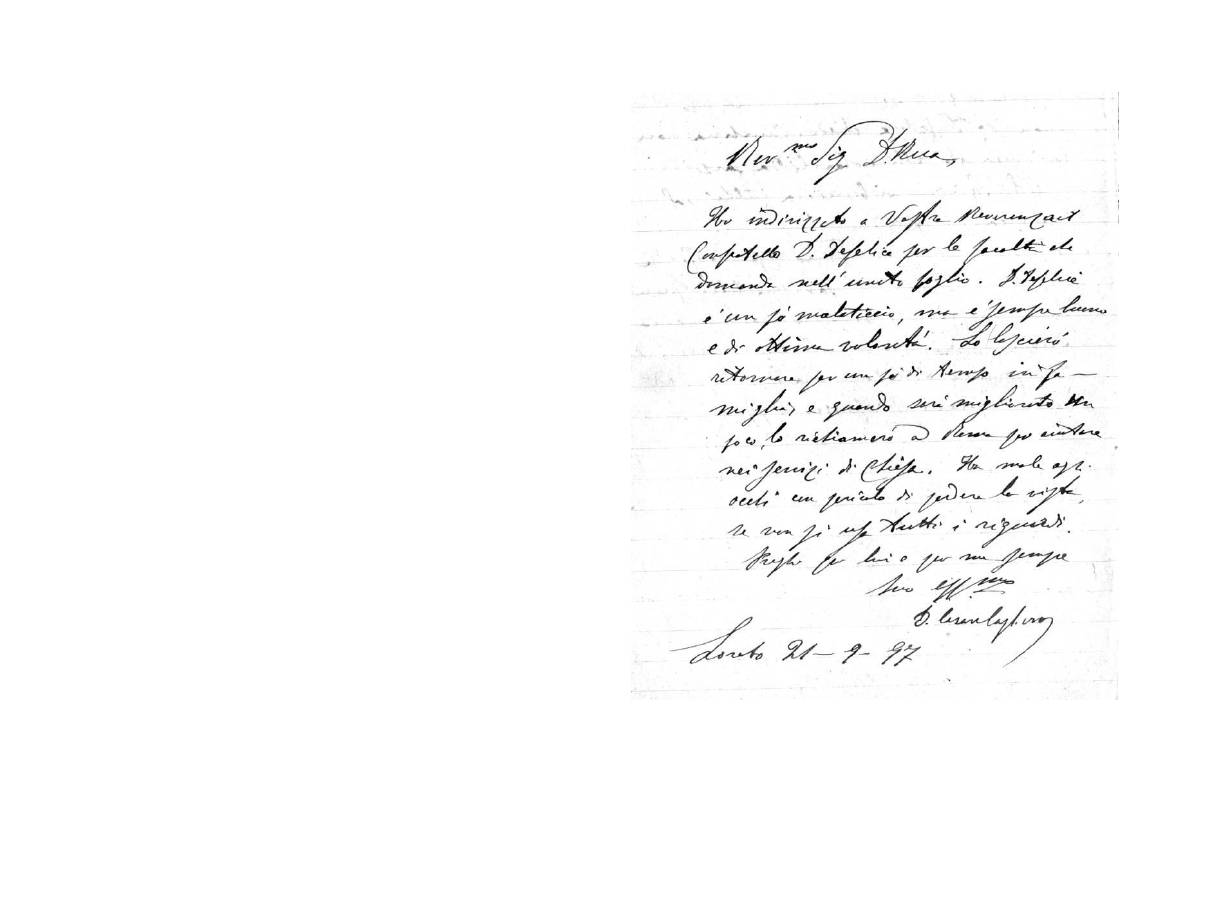 Rev.mo Sig. D. Rua,
Ho indirizzato a Vostra Reverenza il
Confratello D. Defelice per le facoltà che
domanda nell'unito foglio. D. Defelice
è un pò malaticcio, ma è sempre buono
e di ottima volontà. Lo lascierò
ritornare per un pò di tempo in fa-
miglia, e quando sarà migliorato un
poco, lo richiamerò a Roma per aiutare
nei servizi di Chiesa. Ha male agli
occhi con pericolo di perdere la vista,
se non si usa tutti i riguardi.
Preghi per lui e per me sempre
Suo aff.mo
D. Cesare Cagliero
Loreto 21-9-97